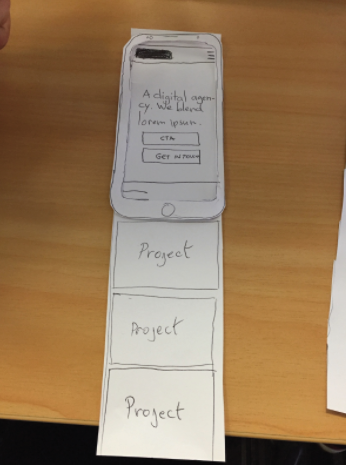 A digital agen-
cy. We blend
lorem ipsum.
CTA
GET IN TOUCH
Project
Project
Project